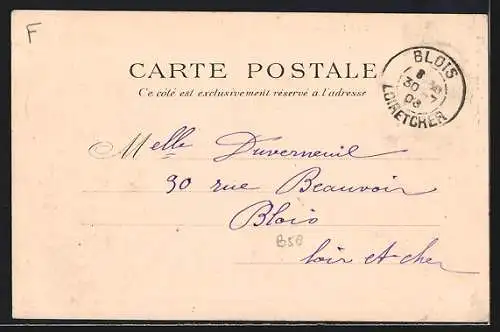 F
CARTE POSTALE
Ce côté est exclusivement réservé à l'adresse
BLOIS
8
30
03
LOIR ET CHER
Melle Duverneuil
30 rue Beauvoir
Blois
B50
loir et cher